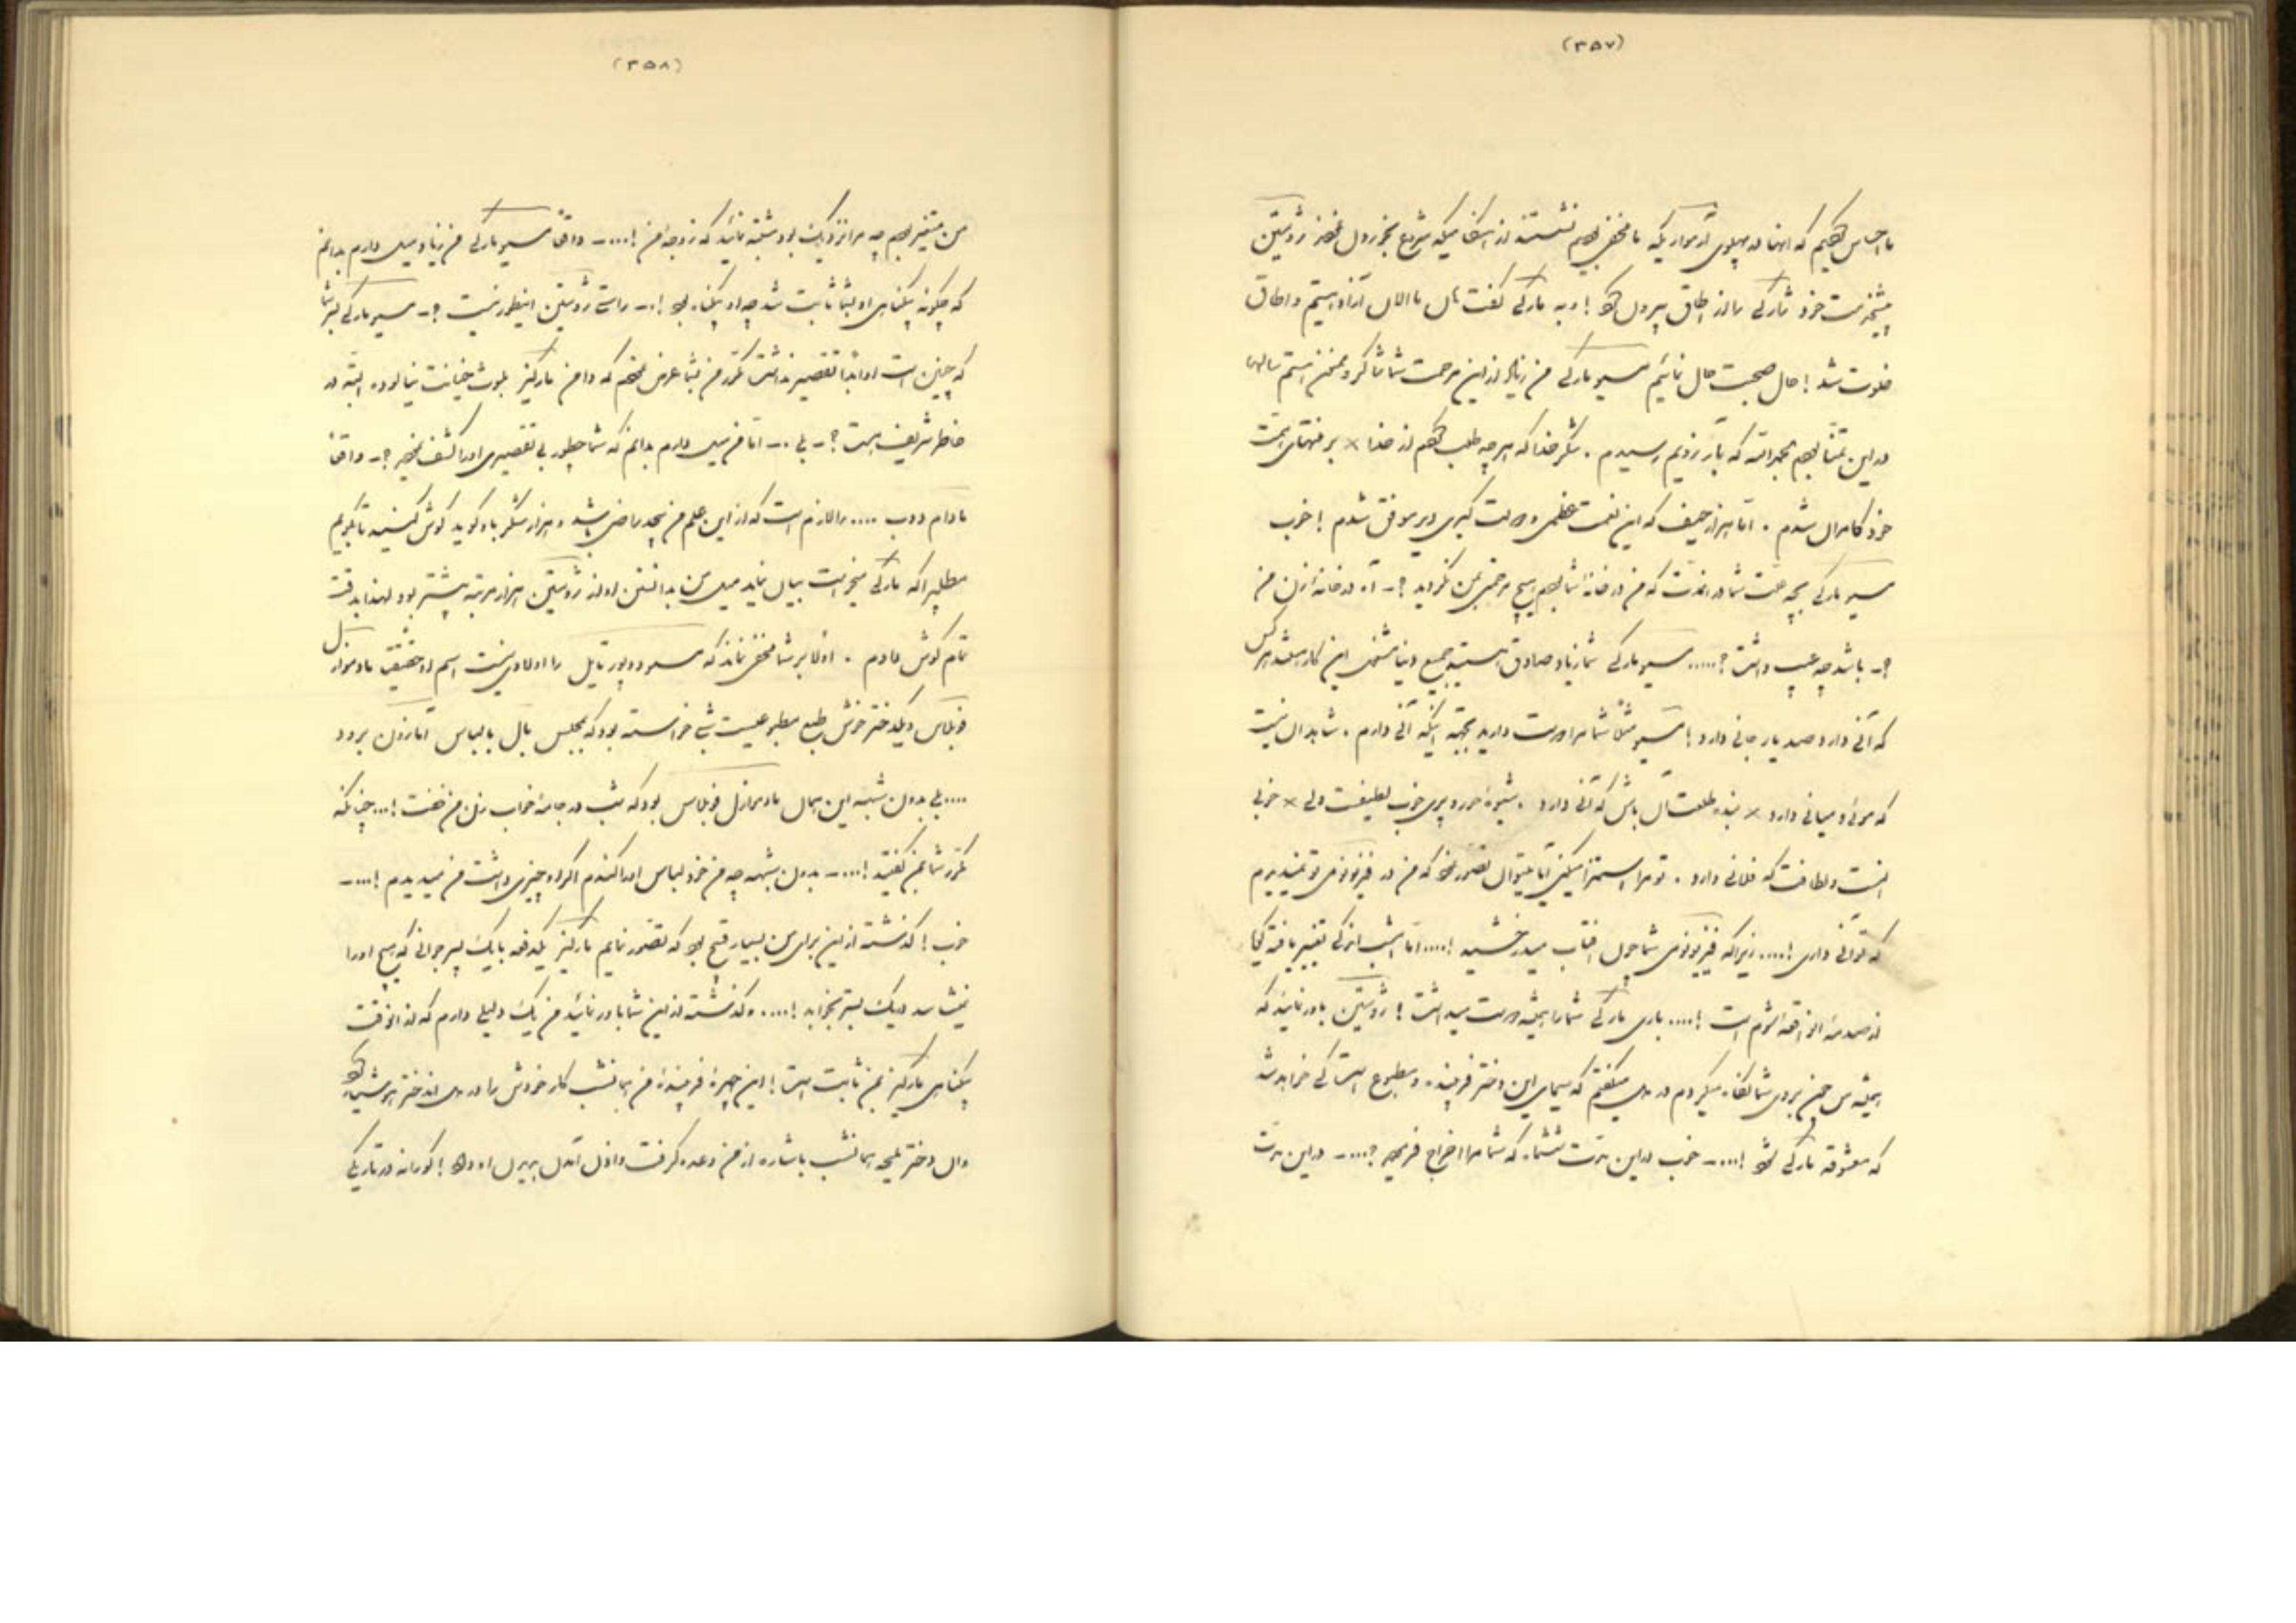 (۳۵۷)
ما احساس کردیم که آنها در پهلوی آرمواریکه ما مخفی بودیم نشستند از اینجا میکه شروع بخوردن نمودند ژوستین
پیشخدمت خود مارکی را از اطاق بیرون کرد! و به مارکی گفت مال ما الان آزاد هستیم و اطاق
خلوت شد! حال صحبت حال نمائیم مسیو مارکی من زیاد از این مرحمت شما شاکر و ممنون هستم سالها
در این تمنّا بودم بحمدالله که بآرزویم رسیدم. شکر خدا که هر چه طلب کردم از خدا × بر منتهای همت
خود کامران شدم. امّا هزار حیف که این نعمت عظمی و دولت کبری دیر موفق شدم! خوب
مسیو مارکی بچه علّت شما در اندت که من در خانهٔ شما بودم هیچ مرحمتی بمن نکردید؟ ـ آه در خانهٔ زن من
؟ ـ باشد چه عیب داشت؟..... مسیو مارکی شما زیاد صادق هستید جمیع دنیا مثل این کار میکنند هرکس
که آنی دارد صد یار جانی دارد! مسیو مثلاً شما مرا دوست دارید بجهة اینکه آنی دارم. شاهد آن نیست
که موئی و میانی دارد × بندهٔ طلعت آن باش که آنی دارد. شیوهٔ حور و پری خوب لطیفست ولی × خوبی
اینست و لطافت که فلانی دارد. تو مرا استهزا میکنی امّا میتوان تصور نمود که من در فیزیونومی تو نمیدیدم
که تو آنی داری!.... زیرا که فیزیونومی شما چون آفتاب میدرخشید!.... امّا امشب اندکی تغییر یافته گویا
از صدمهٔ آن واقعهٔ شوم است!.... باری مارکی شما را همیشه دوست میداشت! ژوستین باور نمائید که
همیشه من چون بروی شما نگاه میکردم در دل میگفتم که سیمای این دختر فریبنده و مطبوع است کی خواهد شد
که معشوقه مارکی شود!...ـ خوب در این مدّت ششماه که شما مرا اخراج فرمودید؟...ـ در این مدّت
(۳۵۸)
من متغیر بودم چه مرا نزدیک بود مشتبه نمائید که زوجهٔ من!....ـ واقعاً مسیو مارکی من زیاد میل دارم بدانم
که چگونه بیگناهی او بشما ثابت شد چه او بیگناه بود!..ـ راستی ژوستین اینطور نیست؟ـ مسیو مارکی البته
که چنین است او ابداً تقصیر نداشت مکرّر من بشما عرض نمودم که دامن مارکیز بلوث خیانت نیالوده البتّه در
خاطر شریف هست؟ـ بلی..ـ امّا من میل دارم بدانم که شما چطور بی تقصیری او را کشف نمودید؟ـ واقعاً
مادام دوب .... را لازم است که از این علم من بیحد راضی باشد و هزار شکر باو گوید گوش کنید تا بگویم
مطلبی را که مارکی میخواست بیان نماید میل من بدانستن او از ژوستین هزار مرتبه بیشتر بود لهذا بدقت
تمام گوش دادم. اولاً بر شما مخفی نماند که مسیو دوپورتایل را اولادی نیست اسم او حقیقی مادموازل
فوبلاس و یکدختر خوش طبع مطبوعیست شبی خواسته بود که بمجلس بال با لباس آمازون برود
.... بلی بدون شبهه این همان مادموازل فوبلاس بود که شب در جامهٔ خواب زن من خفت!... چنانکه
مکرّر شما بمن گفتید!....ـ بدون شبهه چه من خود لباس او را کندم اگر او چیزی داشت من میدیدم!....ـ
خوب! گذشته از این برای من بسیار قبیح بود که تصوّر نمایم مارکیز یکدفعه با یک پسر جوانی که هیچ او را
نمیشناسد در یک بستر بخوابد!.... و گذشته از این شما باور نمائید من یک دلیلی دارم که از آنوقت
بیگناهی مارکیز بمن ثابت است! این چهرهٔ فریبندهٔ من همانشب کار خودش را در دل آندختر هرشیار کرد
وان دختر ملیحه همانشب باشاره از من وعده گرفت و اول آمدن بیرون او بود! کورانه در تاریکی